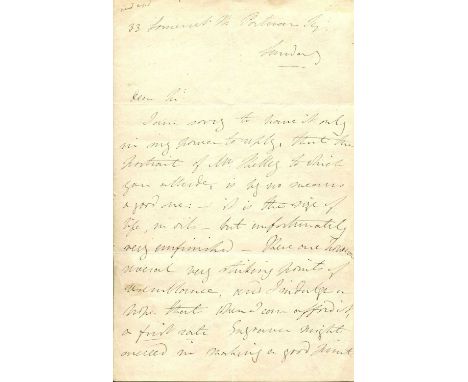 33 Somerset St. Portman Sq.
Sunday
Dear Sir
I am sorry to have it only
in my power to reply, that the
portrait of Mr Shelley to which
you allude, is by no means
a good one – it is the size of
life, in oils – but unfortunately
very unfinished – There are however
several very striking points of
resemblance, and I indulge a
hope that when I can afford it,
a first rate Engraver might
succeed in making a good print